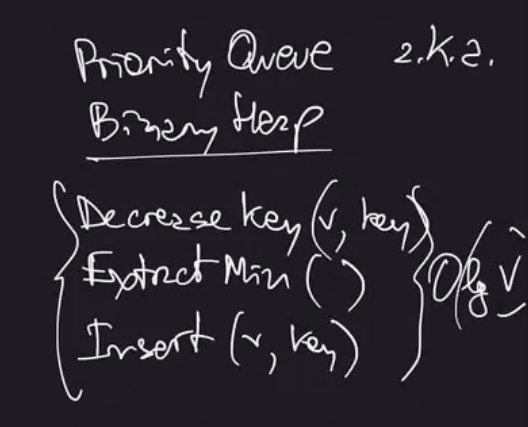 Priority Queue a.k.a.
Binary Heap
Decrease key (v, key)
Extract Min ( )
Insert (v, key)
O(lg V)